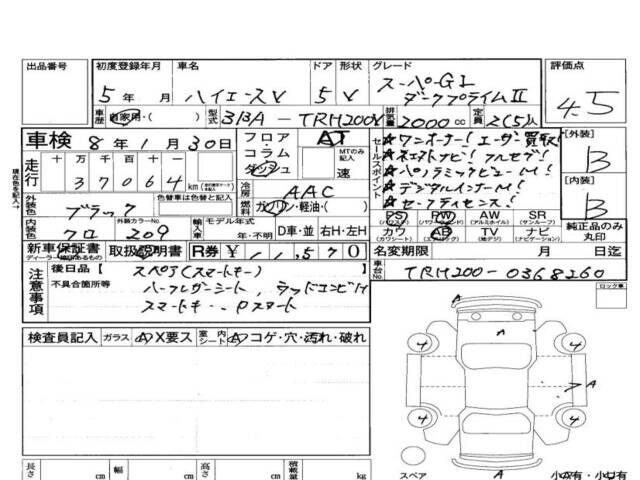 出品番号 初度登録年月 車名 ドア 形状 グレード 評価点
5年 月 ハイエースV 5 V スーパーGL ダークプライムII 4.5
車歴 自家用・( ) 型式 3BA-TRH200V 排気量 2000cc 定員 2(5)人
車検 8年1月30日 フロア・コラム ダッシュ AT MTのみ記入 速
走行 十万千百十一 37064 km
色替車は色替と記入
冷房 AAC
燃料 ガソリン・軽油・( )
セールスポイント
★ワンオーナー! ユーザー買取!
★ネクストナビ! フルセグ!
★パノラミックビューM!
★デジタルインナーM!
★セーフティセンス!
[外装] B
[内装] B
外装色 ブラック
内装色 クロ 外装カラーNo. 209 輸入車 モデル年式 年・不明 D車・並 右H・左H
PS (パワステ) PW (パワーウィンドー) AW (アルミホイル) SR (サンルーフ)
カワ (カワシート) AB (エアバッグ) TV (地デジ) ナビ (ナビゲーション) 純正品のみ丸印
新車保証書 取扱説明書 R券 ¥11,570 名変期限 月 日迄
注意事項 後日品[スペア(スマートキー) ]
車台No. TRH200-0368260
不具合箇所等 ハーフレザーシート, ウッドコンビH
スマートキー, Pスタート
ロック車
検査員記入 ガラス A X要ス 室内シート A コゲ・穴・汚れ・破れ
A
A
4 4
A
4 4
A
スペア 小 有・小 有
長さ cm 幅 cm 高さ cm 積載量 kg
現在色を記入→